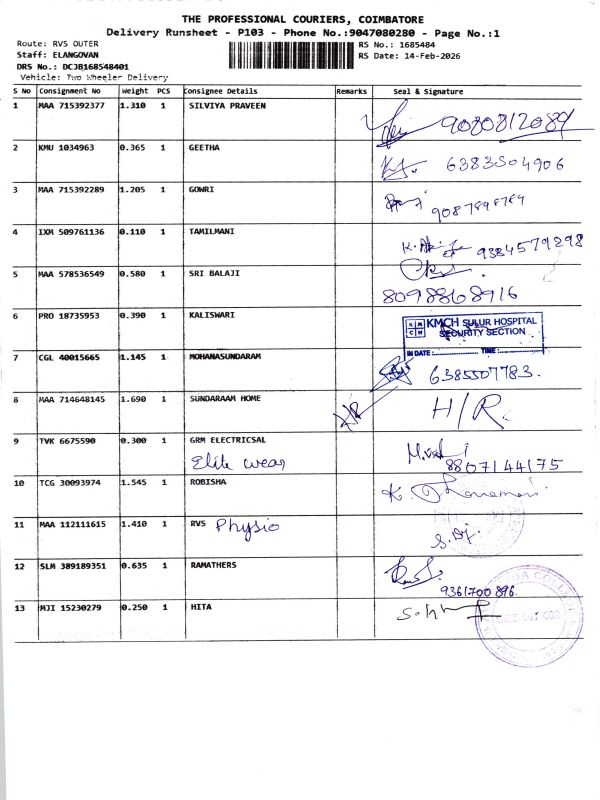 THE PROFESSIONAL COURIERS, COIMBATORE
Delivery Runsheet - P103 - Phone No.:9047080280 - Page No.:1
Route: RVS OUTER RS No.: 1685484
Staff: ELANGOVAN RS Date: 14-Feb-2026
DRS No.: DCJB168548401
Vehicle: Two Wheeler Delivery
S No Consignment No Weight PCS Consignee Details Remarks Seal & Signature
1 MAA 715392377 1.310 1 SILVIYA PRAVEEN
9080812089
2 KMU 1034963 0.365 1 GEETHA
6383504906
3 MAA 715392289 1.205 1 GOWRI
9087898789
4 IXM 509761136 0.110 1 TAMILMANI
9384579298
5 MAA 578536549 0.580 1 SRI BALAJI
8098868916
6 PRO 18735953 0.390 1 KALISWARI
KMCH SULUR HOSPITAL
SECURITY SECTION
IN DATE: TIME:
7 CGL 40015665 1.145 1 MOHANASUNDARAM
6385507783.
8 MAA 714648145 1.690 1 SUNDARAAM HOME H/R.
9 TVK 6675590 0.300 1 GRM ELECTRICSAL
Elite wear 8807144175
10 TCG 30093974 1.545 1 ROBISHA
11 MAA 112111615 1.410 1 RVS Physio
12 SLM 389189351 0.635 1 RAMATHERS
9361700896
13 MJI 15230279 0.250 1 HITA